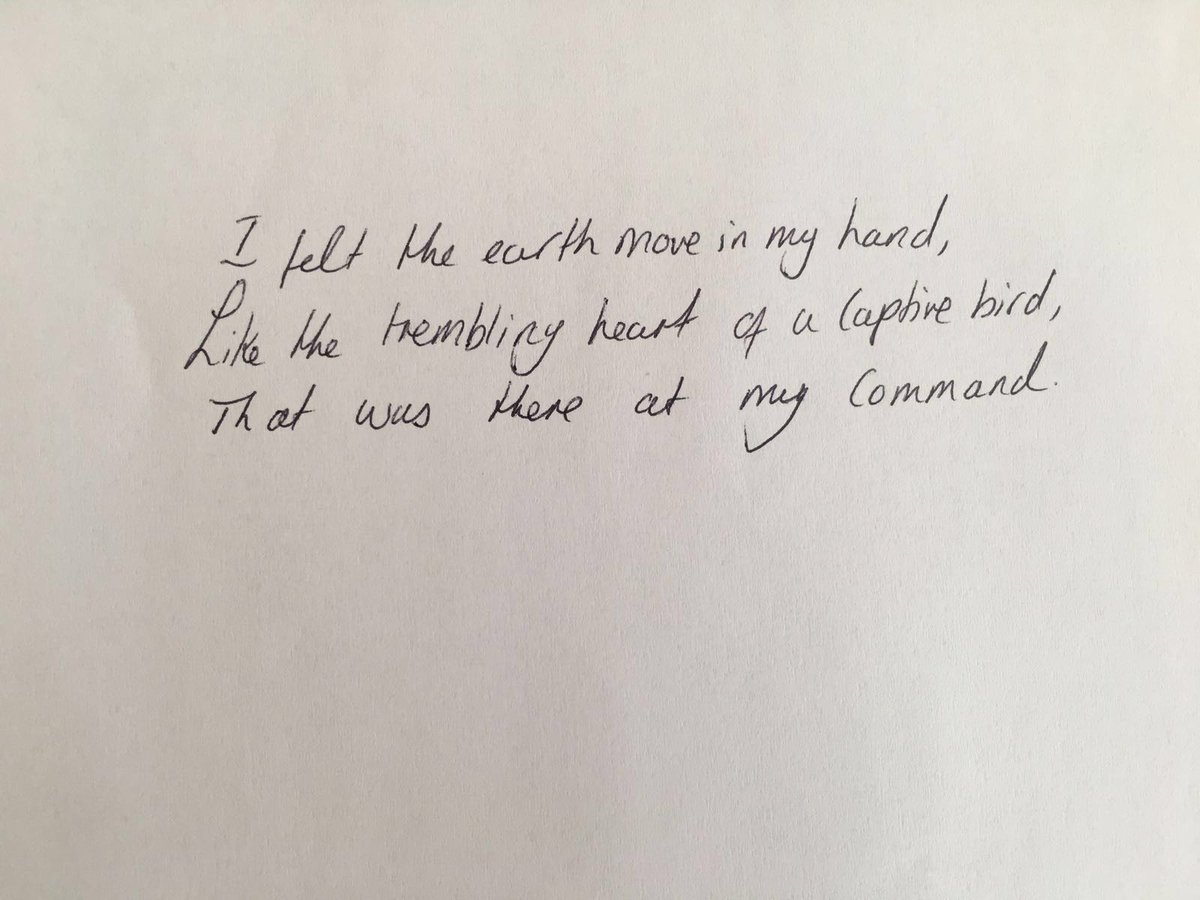 I felt the earth move in my hand,
Like the trembling heart of a captive bird,
That was there at my command.